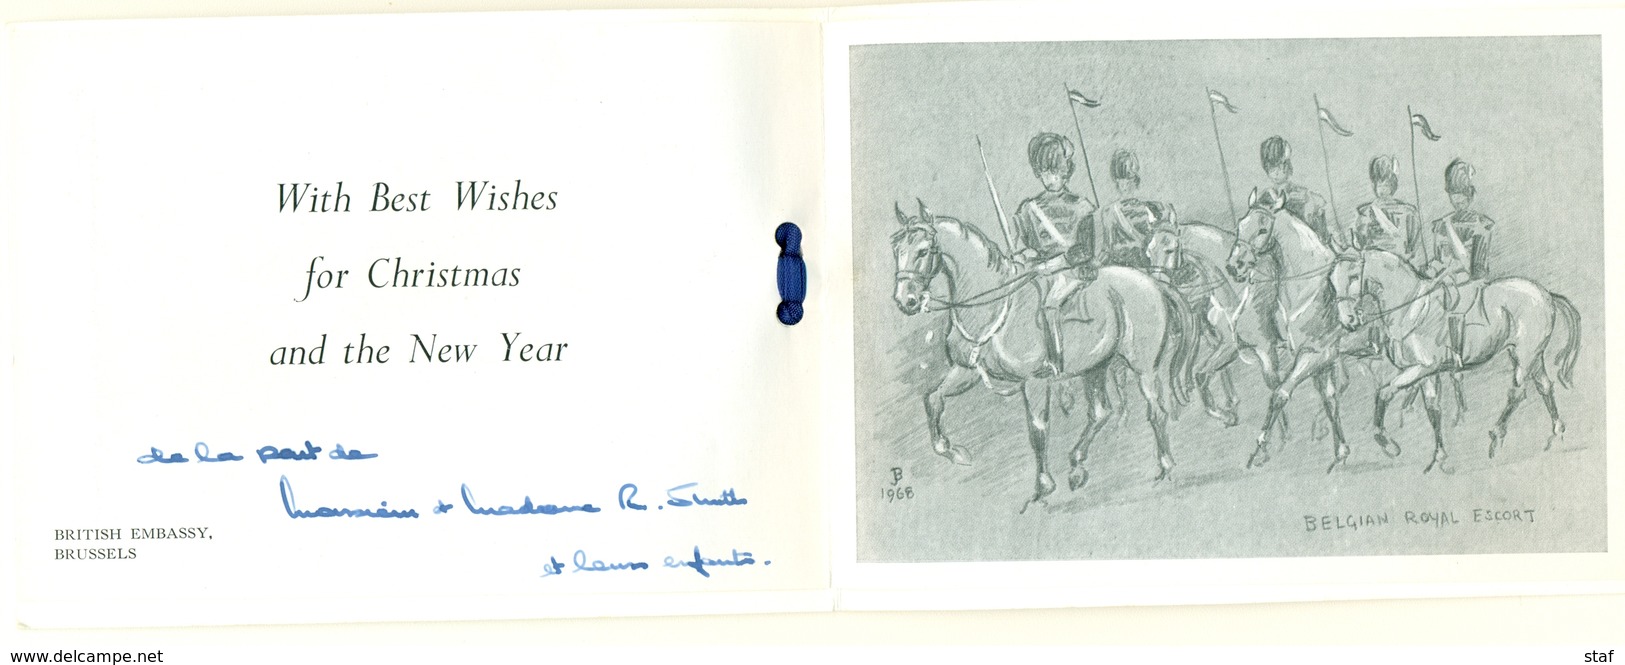 With Best Wishes
for Christmas
and the New Year
de la part de
Monsieur & Madame R. Smith
et leurs enfants.
BRITISH EMBASSY,
BRUSSELS
JB
1968
BELGIAN ROYAL ESCORT
www.delcampe.net
staf